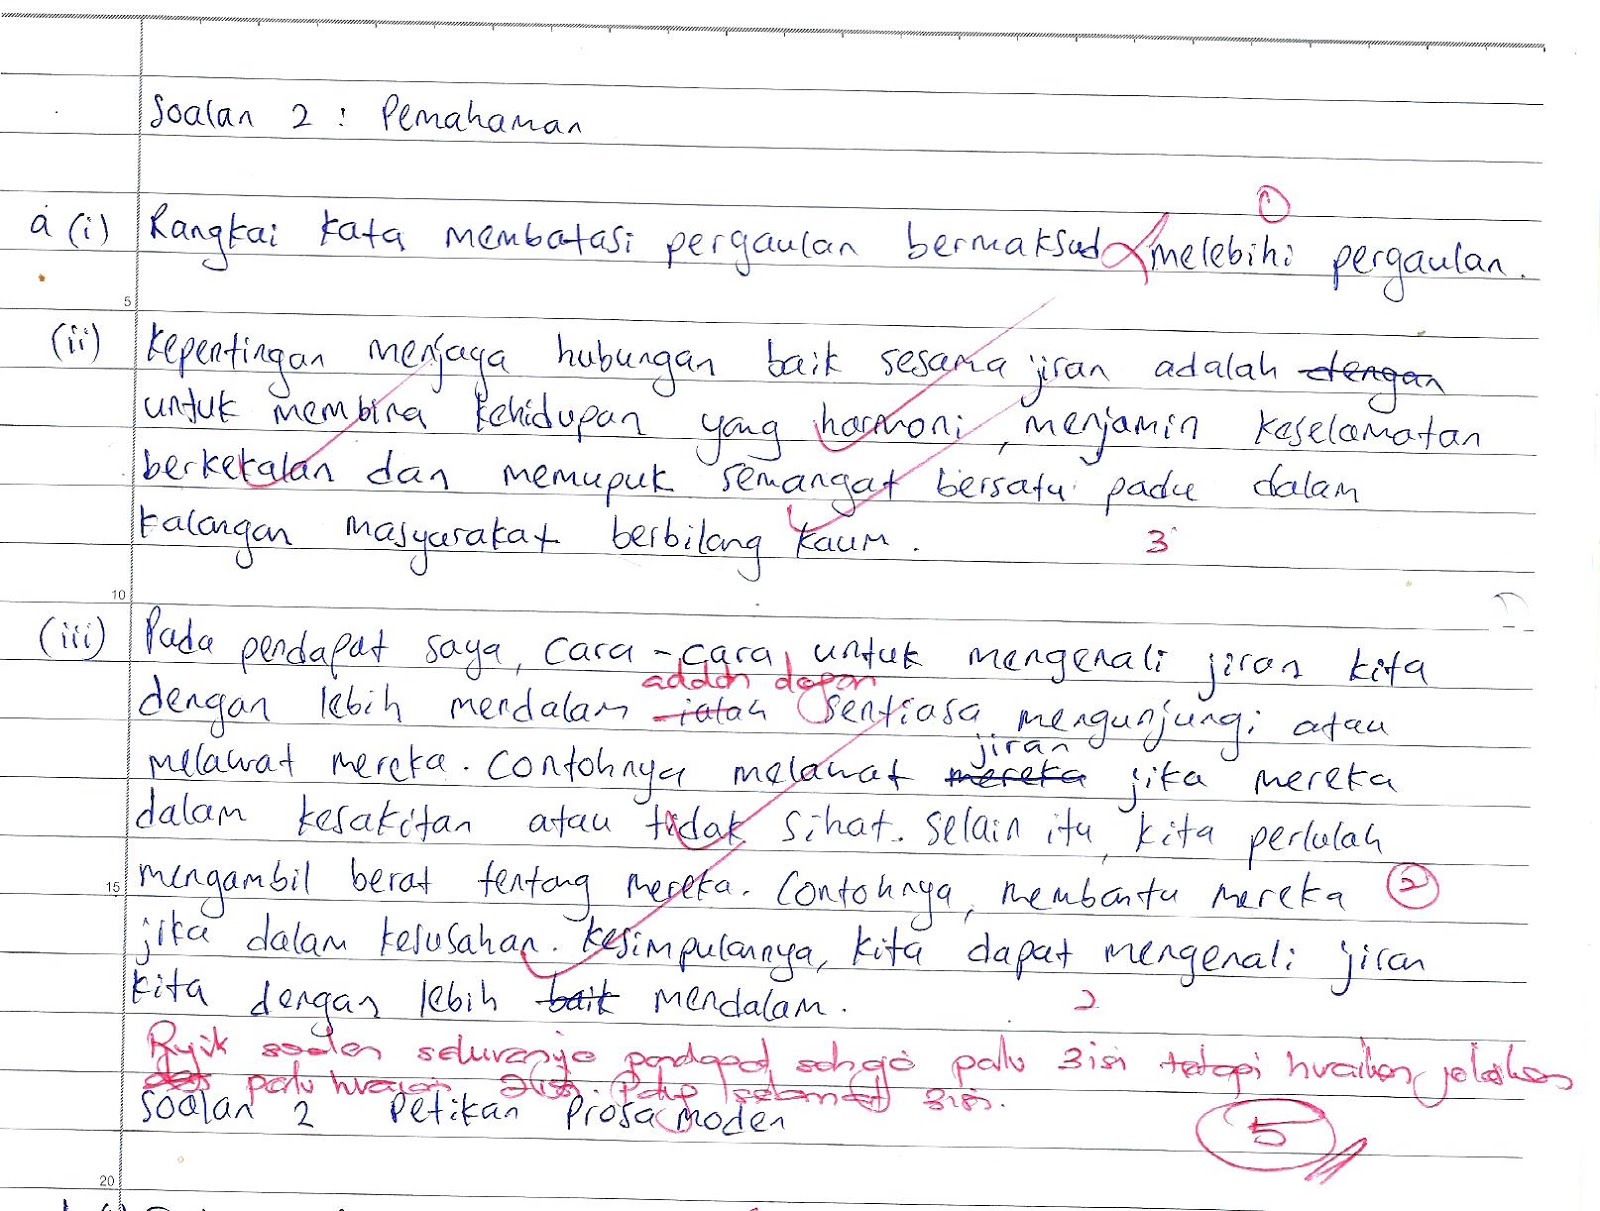 Soalan 2 : Pemahaman
a (i) Rangkai kata membatasi pergaulan bermaksud melebihi pergaulan.
5
(ii) Kepentingan menjaga hubungan baik sesama jiran adalah dengan
untuk membina kehidupan yang harmoni, menjamin keselamatan
berkekalan dan memupuk semangat bersatu padu dalam
kalangan masyarakat berbilang kaum. 3
10
(iii) Pada pendapat saya, cara-cara untuk mengenali jiran kita
dengan lebih mendalam ialah sentiasa mengunjungi atau
jiran
melawat mereka. Contohnya melawat mereka jika mereka
dalam kesakitan atau tidak sihat. Selain itu, kita perlulah
15 mengambil berat tentang mereka. Contohnya, membantu mereka 2
jika dalam kesusahan. Kesimpulannya, kita dapat mengenali jiran
kita dengan lebih baik mendalam. 2
soalan pendapat perlu 3 isi tetapi huraikan
3 isi.
Soalan 2 Petikan Prosa moden 5
20